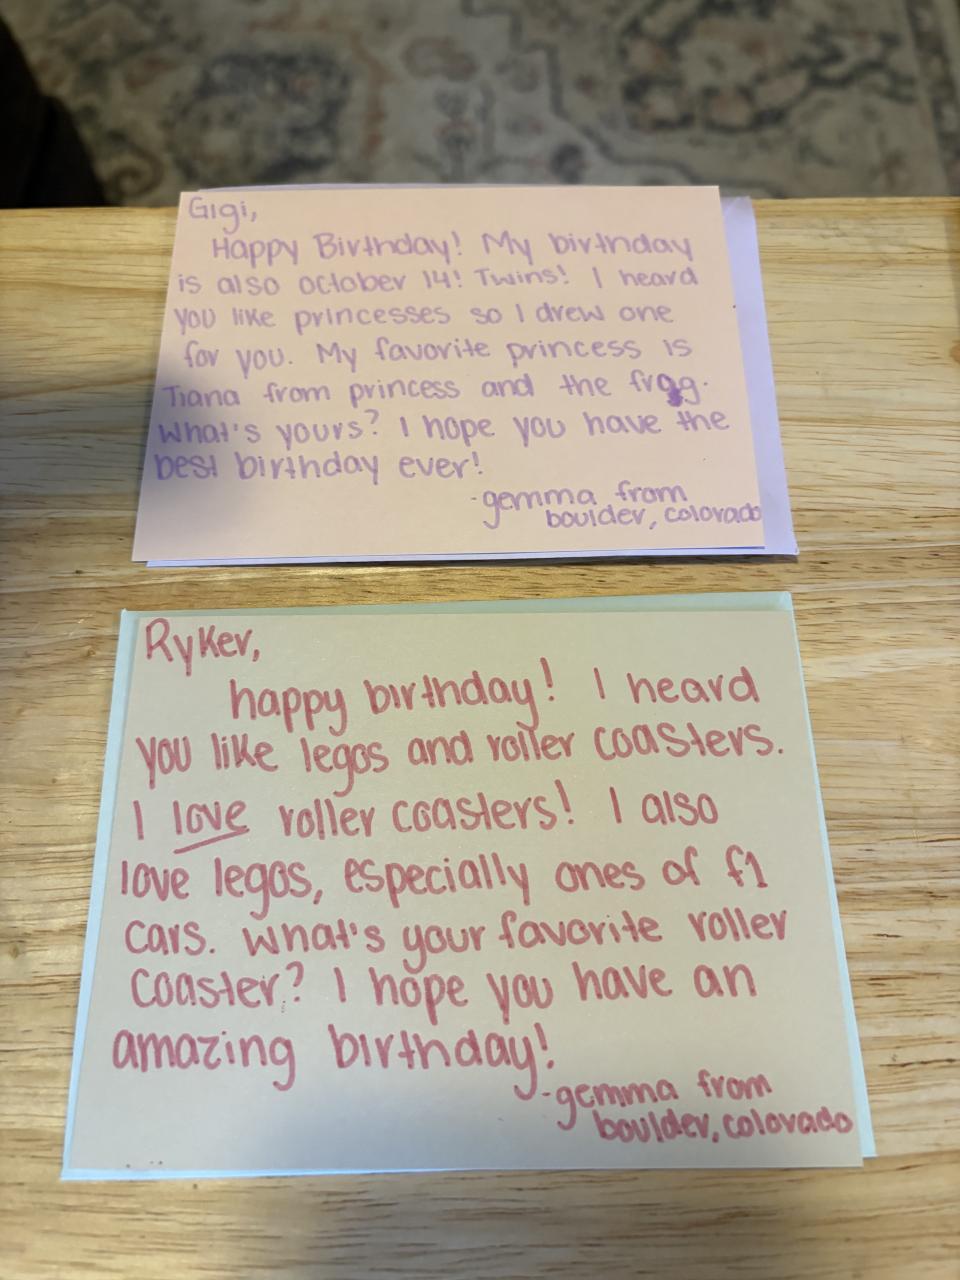 Gigi,
Happy Birthday! My birthday
is also october 14! Twins! I heard
you like princesses so I drew one
for you. My favorite princess is
Tiana from princess and the frog.
What's yours? I hope you have the
best birthday ever!
-gemma from
boulder, colorado
Ryker,
happy birthday! I heard
you like legos and roller coasters.
I love roller coasters! I also
love legos, especially ones of f1
cars. What's your favorite roller
coaster? I hope you have an
amazing birthday!
-gemma from
boulder, colorado